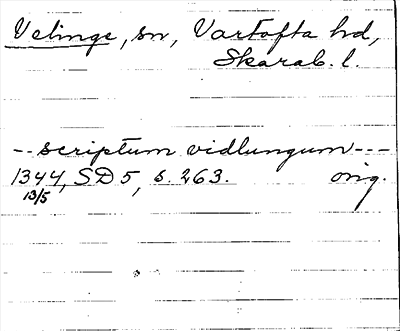 Velinge, sn, Vartofta hd,
Skarab. l.
--scriptum vidlungum---
1344, SD 5, s. 263. orig.
13/5